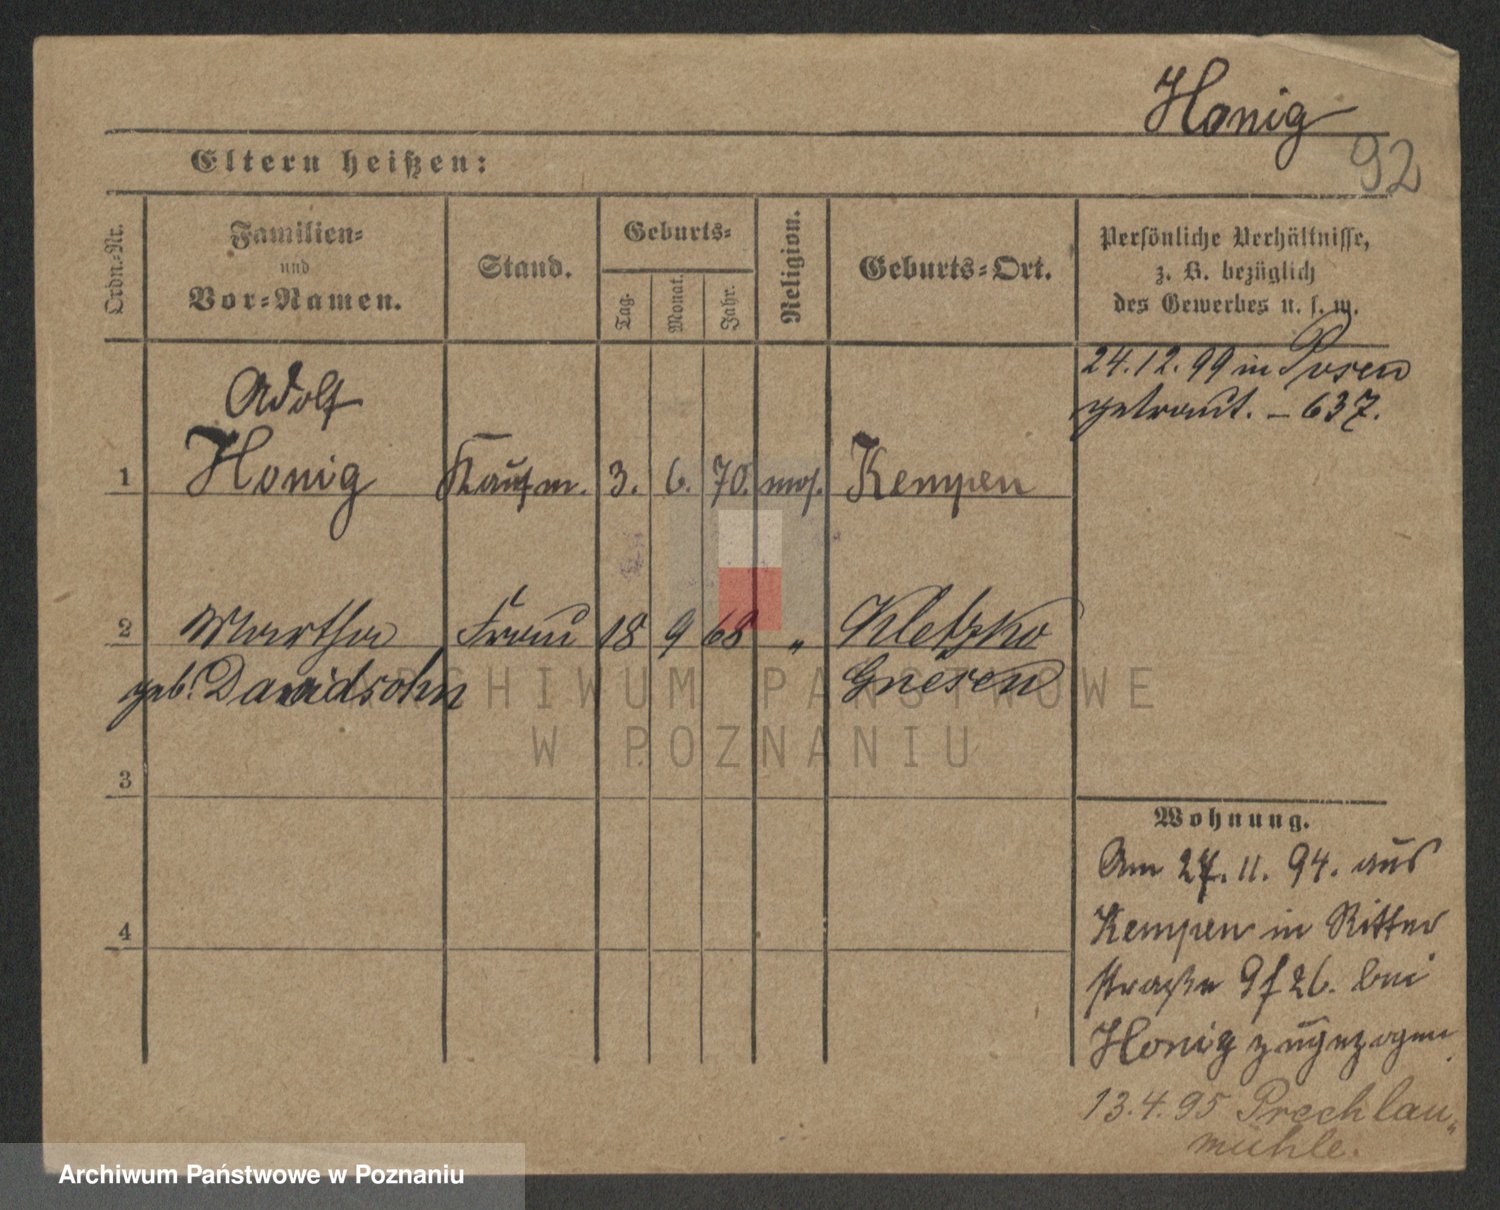 Honig
92
Eltern heißen:
Ordn.-Nr.
Familien-
und
Vor-Namen.
Stand.
Geburts-
Tag.
Monat.
Jahr.
Religion.
Geburts-Ort.
Persönliche Verhältnisse,
z. B. bezüglich
des Gewerbes u. s. w.
24.12.99 in Posen
getraut. – 637.
Adolf
1 Honig Kaufm. 3. 6. 70. mos. Kempen
2 Martha Frau 18 9 68 " Kletzko
geb. Davidsohn Gnesen
3
4
Wohnung.
Am 27.11.94. aus
Kempen in Ritter
straße 9 f 26. bei
Honig zugezogen
13.4.95 Prechlau-
mühle.
ARCHIWUM PAŃSTWOWE
W POZNANIU
Archiwum Państwowe w Poznaniu